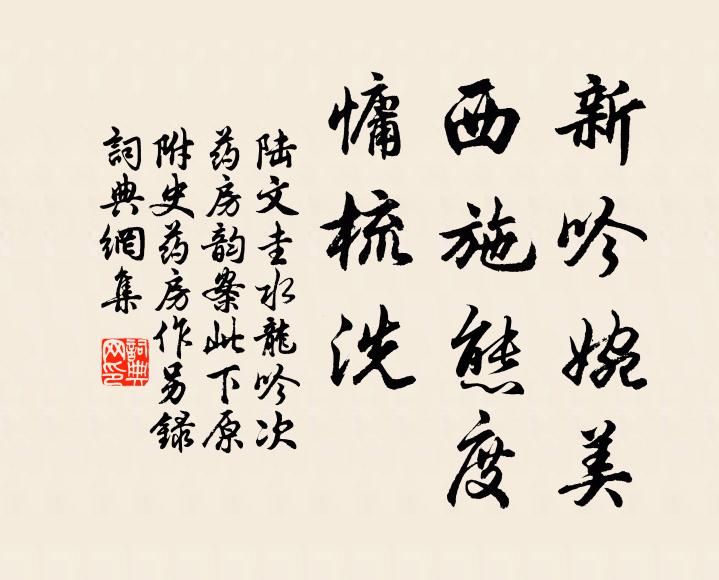 新吟婉美
西施態度
慵梳洗
陆文圭水龍吟次
药房韵案此下原
附史药房作另録
詞典網集
詞典網印